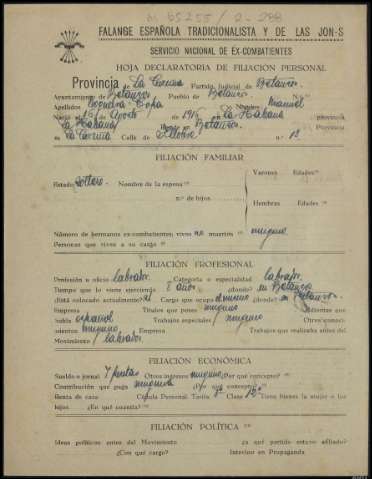 65255 / 2-288
FALANGE ESPAÑOLA TRADICIONALISTA Y DE LAS JON-S
SERVICIO NACIONAL DE EX-COMBATIENTES
HOJA DECLARATORIA DE FILIACIÓN PERSONAL
Provincia de La Coruña Partido Judicial de Betanzos
Ayuntamiento de Betanzos Pueblo de Betanzos N.º
Apellidos Nogueira Nombre Manuel
Nació el 16 de Agosto de 1916 en La Habana Provincia
La Habana Betanzos Provincia
La Coruña Calle de n.º 13
FILIACIÓN FAMILIAR
Estado soltero Nombre de la esposa Varones Edades
n.º de hijos
Hembras Edades
Número de hermanos ex-combatientes; vivos muertos ninguno
Personas que viven a su cargo
FILIACIÓN PROFESIONAL
Profesión u oficio labrador Categoría o especialidad labrador
Tiempo que lo viene ejerciendo 8 años ¿donde? en Betanzos
¿Está colocado actualmente? si Cargo que ocupa el mismo ¿donde? en Betanzos
Empresa Títulos que posee ninguno ¿Idiomas que
habla español Trabajos especiales ninguno Otros conoci-
mientos ninguno Empresa Trabajos que realizaba antes del
Movimiento labrador
FILIACIÓN ECONÓMICA
Sueldo o jornal 7 pesetas Otros ingresos ninguno ¿Por qué concepto?
Contribución que paga ninguna ¿Por qué concepto?
Renta de casa Cédula Personal Tarifa Clase 13ª Tiene bienes la mujer o los
hijos ¿En qué cuantía?
FILIACIÓN POLÍTICA
Ideas políticas antes del Movimiento ¿a qué partido estuvo afiliado?
¿Con qué cargo? Intervino en Propaganda